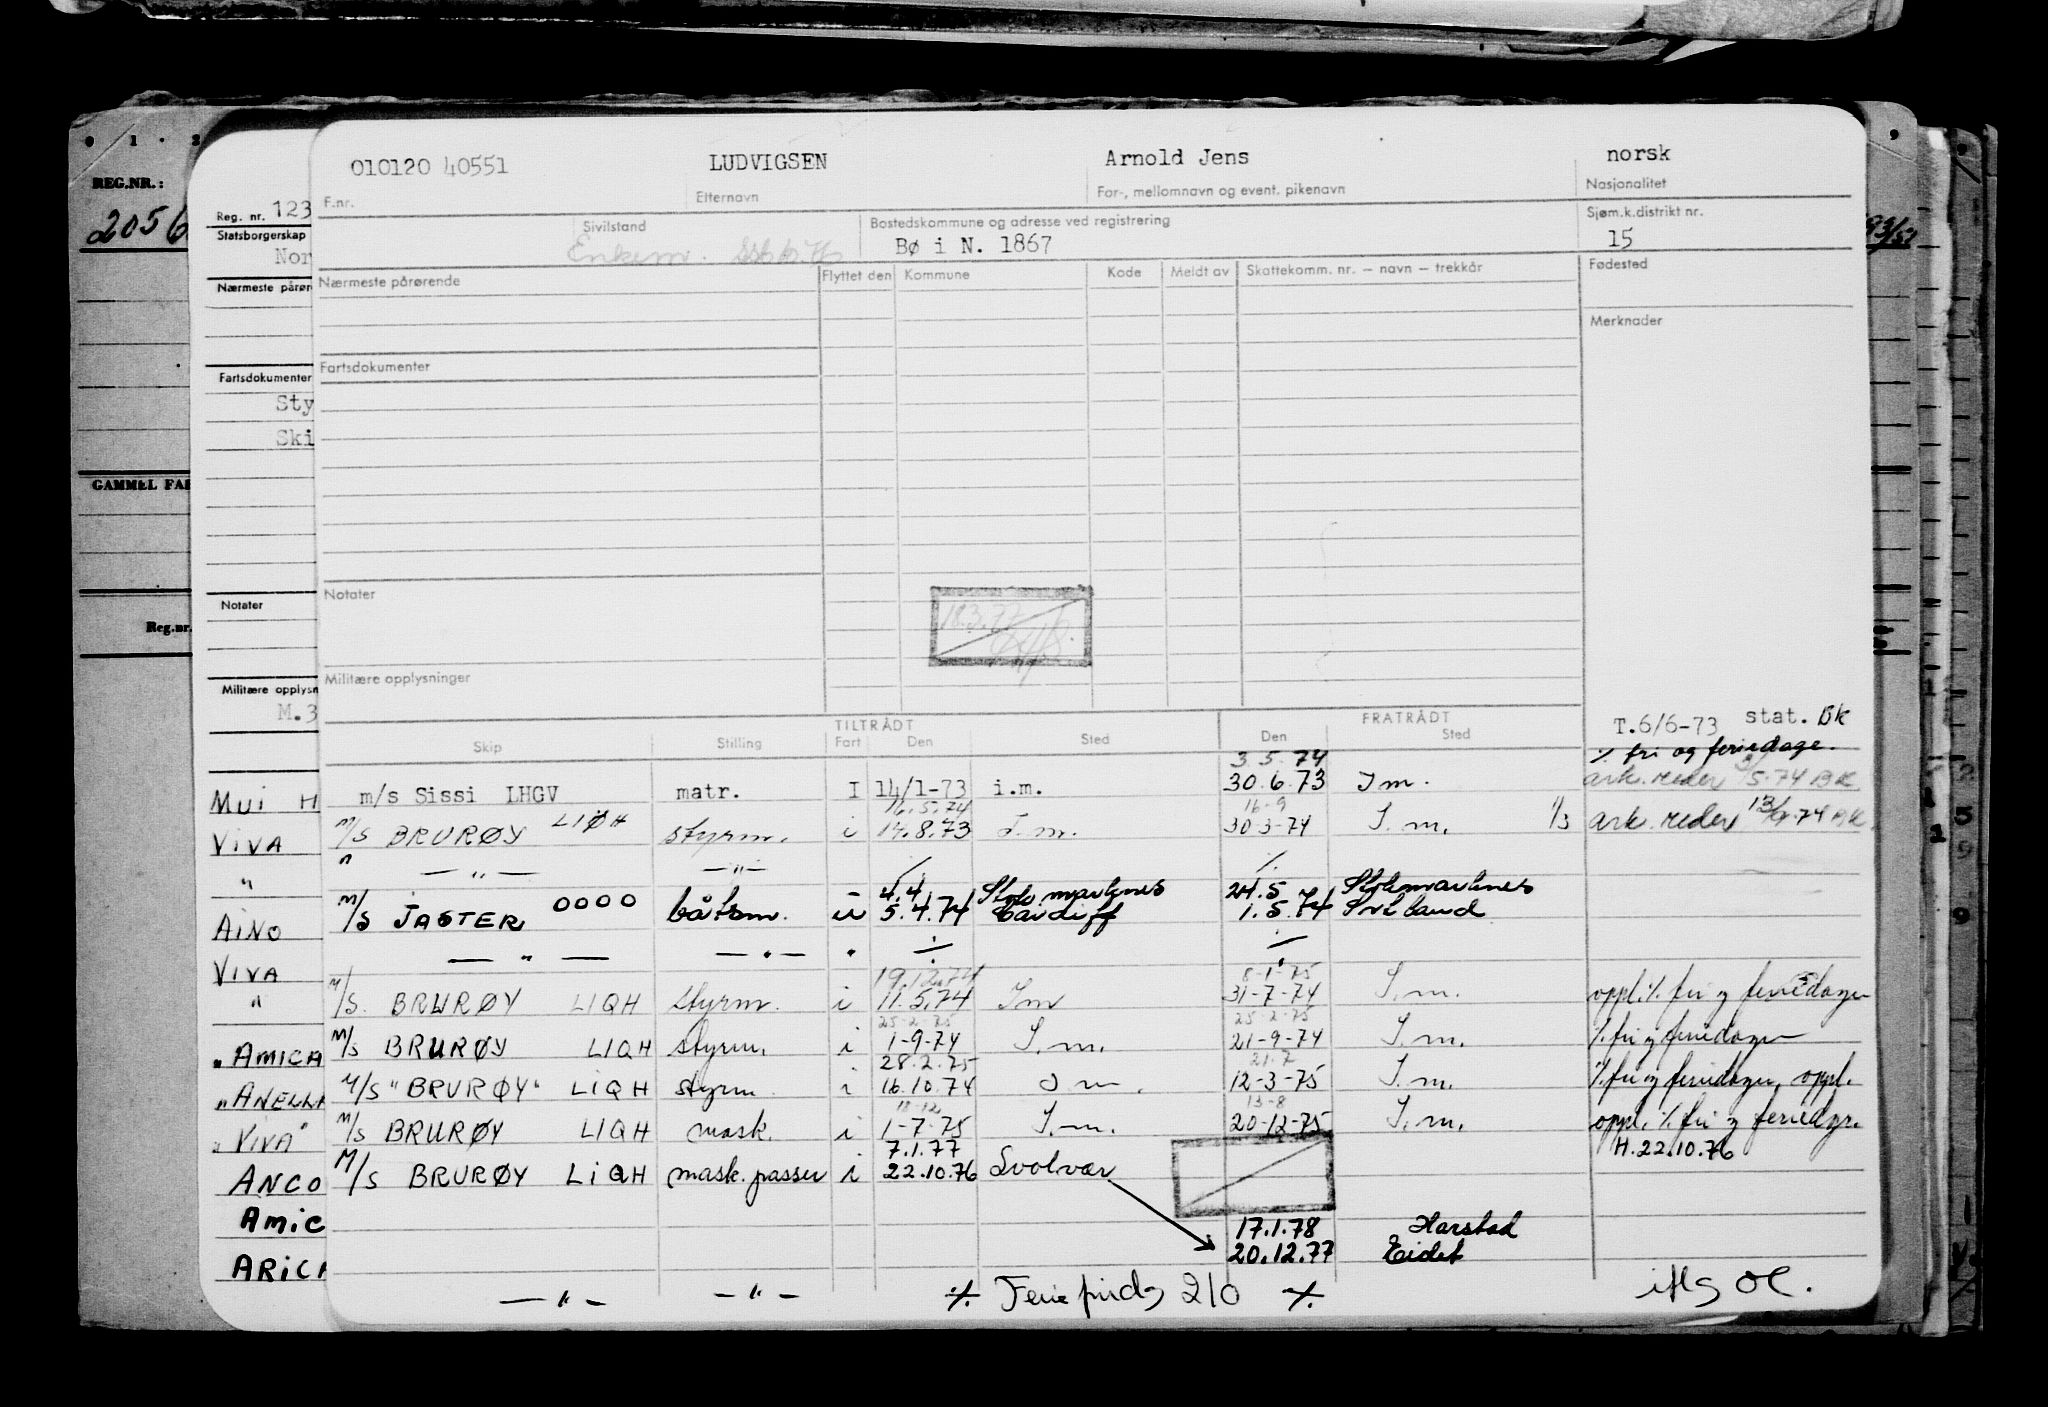 010120 40551 LUDVIGSEN Arnold Jens norsk
F.nr. Etternavn For-, mellomnavn og event. pikenavn Nasjonalitet
Sivilstand Bostedskommune og adresse ved registrering Sjøm.k.distrikt nr.
Enkem. Bø i N. 1867 15
Nærmeste pårørende Flyttet den Kommune Kode Meldt av Skattekomm. nr. – navn – trekkår Fødested
Merknader
Fartsdokumenter
Notater
18.3.77
Militære opplysninger
TILTRÅDT FRATRÅDT T.6/6-73 stat. BK
Skip Stilling Fart Den Sted Den Sted
3.5.74 % fri og feriedage.
m/s Sissi LHGV matr. I 14/1-73 i.m. 30.6.73 I m. ark. reder 3/5.74 BK
16.5.74 16-9
M/S BRURØY LIQH styrm. i 14.8.73 I.m. 30.3-74 I.m. 1/3 ark. reder 13/9.74 BK
" — " — — " — % %
4.4 Stokmarknes 24.5 Stokmarknes
M/S JASTER OOOO båtsm. u 5.4.74 Cardiff 1.5.74
— " — — " — " % %
19.12.74 8-1-75
M/S. BRURØY LIQH styrm. i 11.5.74 I m 31-7-74 I.m. oppl. % fri og feriedager
25-2-75 25-2-75
M/S BRURØY LIQH styrm. i 1-9-74 I.m. 21-9-74 I.m. % fri og feriedager
28.2.75 21.7
M/S "BRURØY" LIQH styrm i 16.10.74 I m. 12-3-75 I.m. % fri og feriedager, oppl.
18-12 13-8
M/S BRURØY LIQH mask. i 1-7-75 I.m. 20-12-75 I.m. oppl. % fri og feriedgr.
7.1.77 H.22.10.76
M/S BRURØY LIQH mask. passer i 22.10.76 Svolvær
17.1.78 Harstad
20.12.77 Eidet
— " — — " — % Feriefrida 210 % iflg OC.
REG.NR.:
2056
GAMMEL FA
Reg.nr.
Reg. nr. 123
Statsborgerskap
Nor
Nærmeste pårør
Fartsdokumenter
Sty
Ski
Notater
Militære opplysn
M.3
MUI H
VIVA
"
AINO
VIVA
"
"AMICA
"ANELLA
"VIVA"
ANCO
AMIC
ARICA